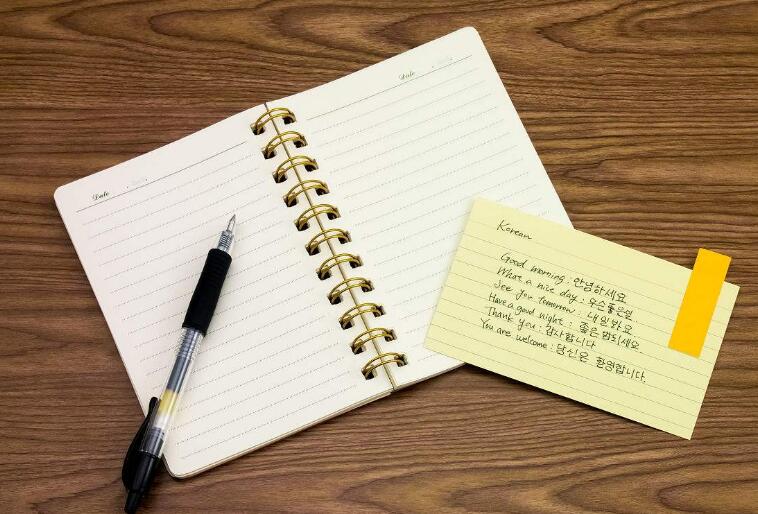 Date
Date
Korean
Good morning : 안녕하세요
What a nice day : 우수좋은일
See you tomorrow : 내일봐요
Have a good night : 좋은밤되세요
Thank you : 감사합니다
You are welcome : 당신은 환영합니다.